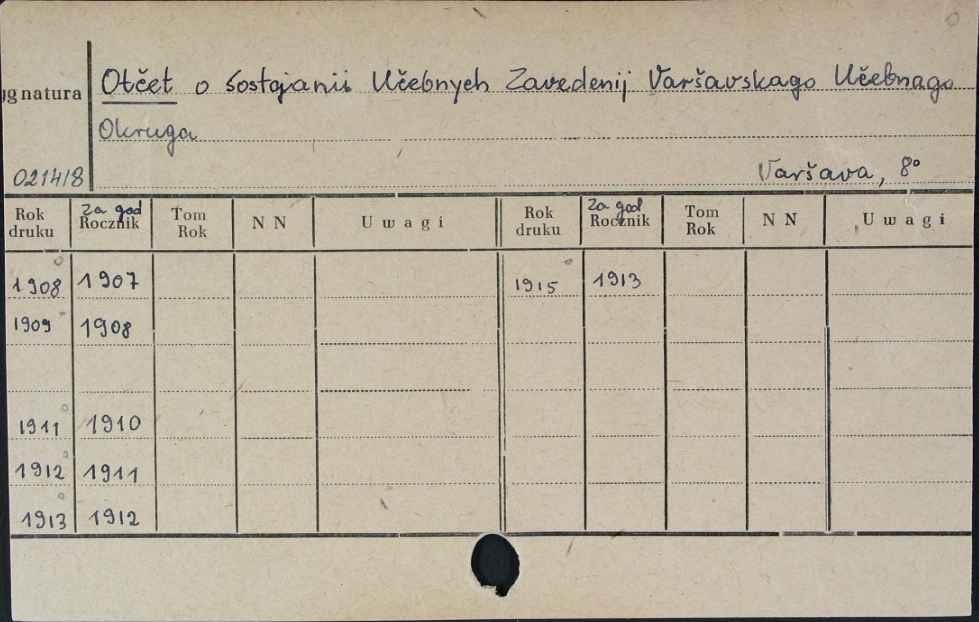 Otčet o Sostojanii Učebnych Zavedenij Varšavskago Učebnago
gnatura
Okruga
021418
Varšava, 8°
Rok druku Za god Rocznik Tom Rok N N Uwagi Rok druku Za god Rocznik Tom Rok N N Uwagi
1908 1907 1915 1913
1909 1908
1911 1910
1912 1911
1913 1912